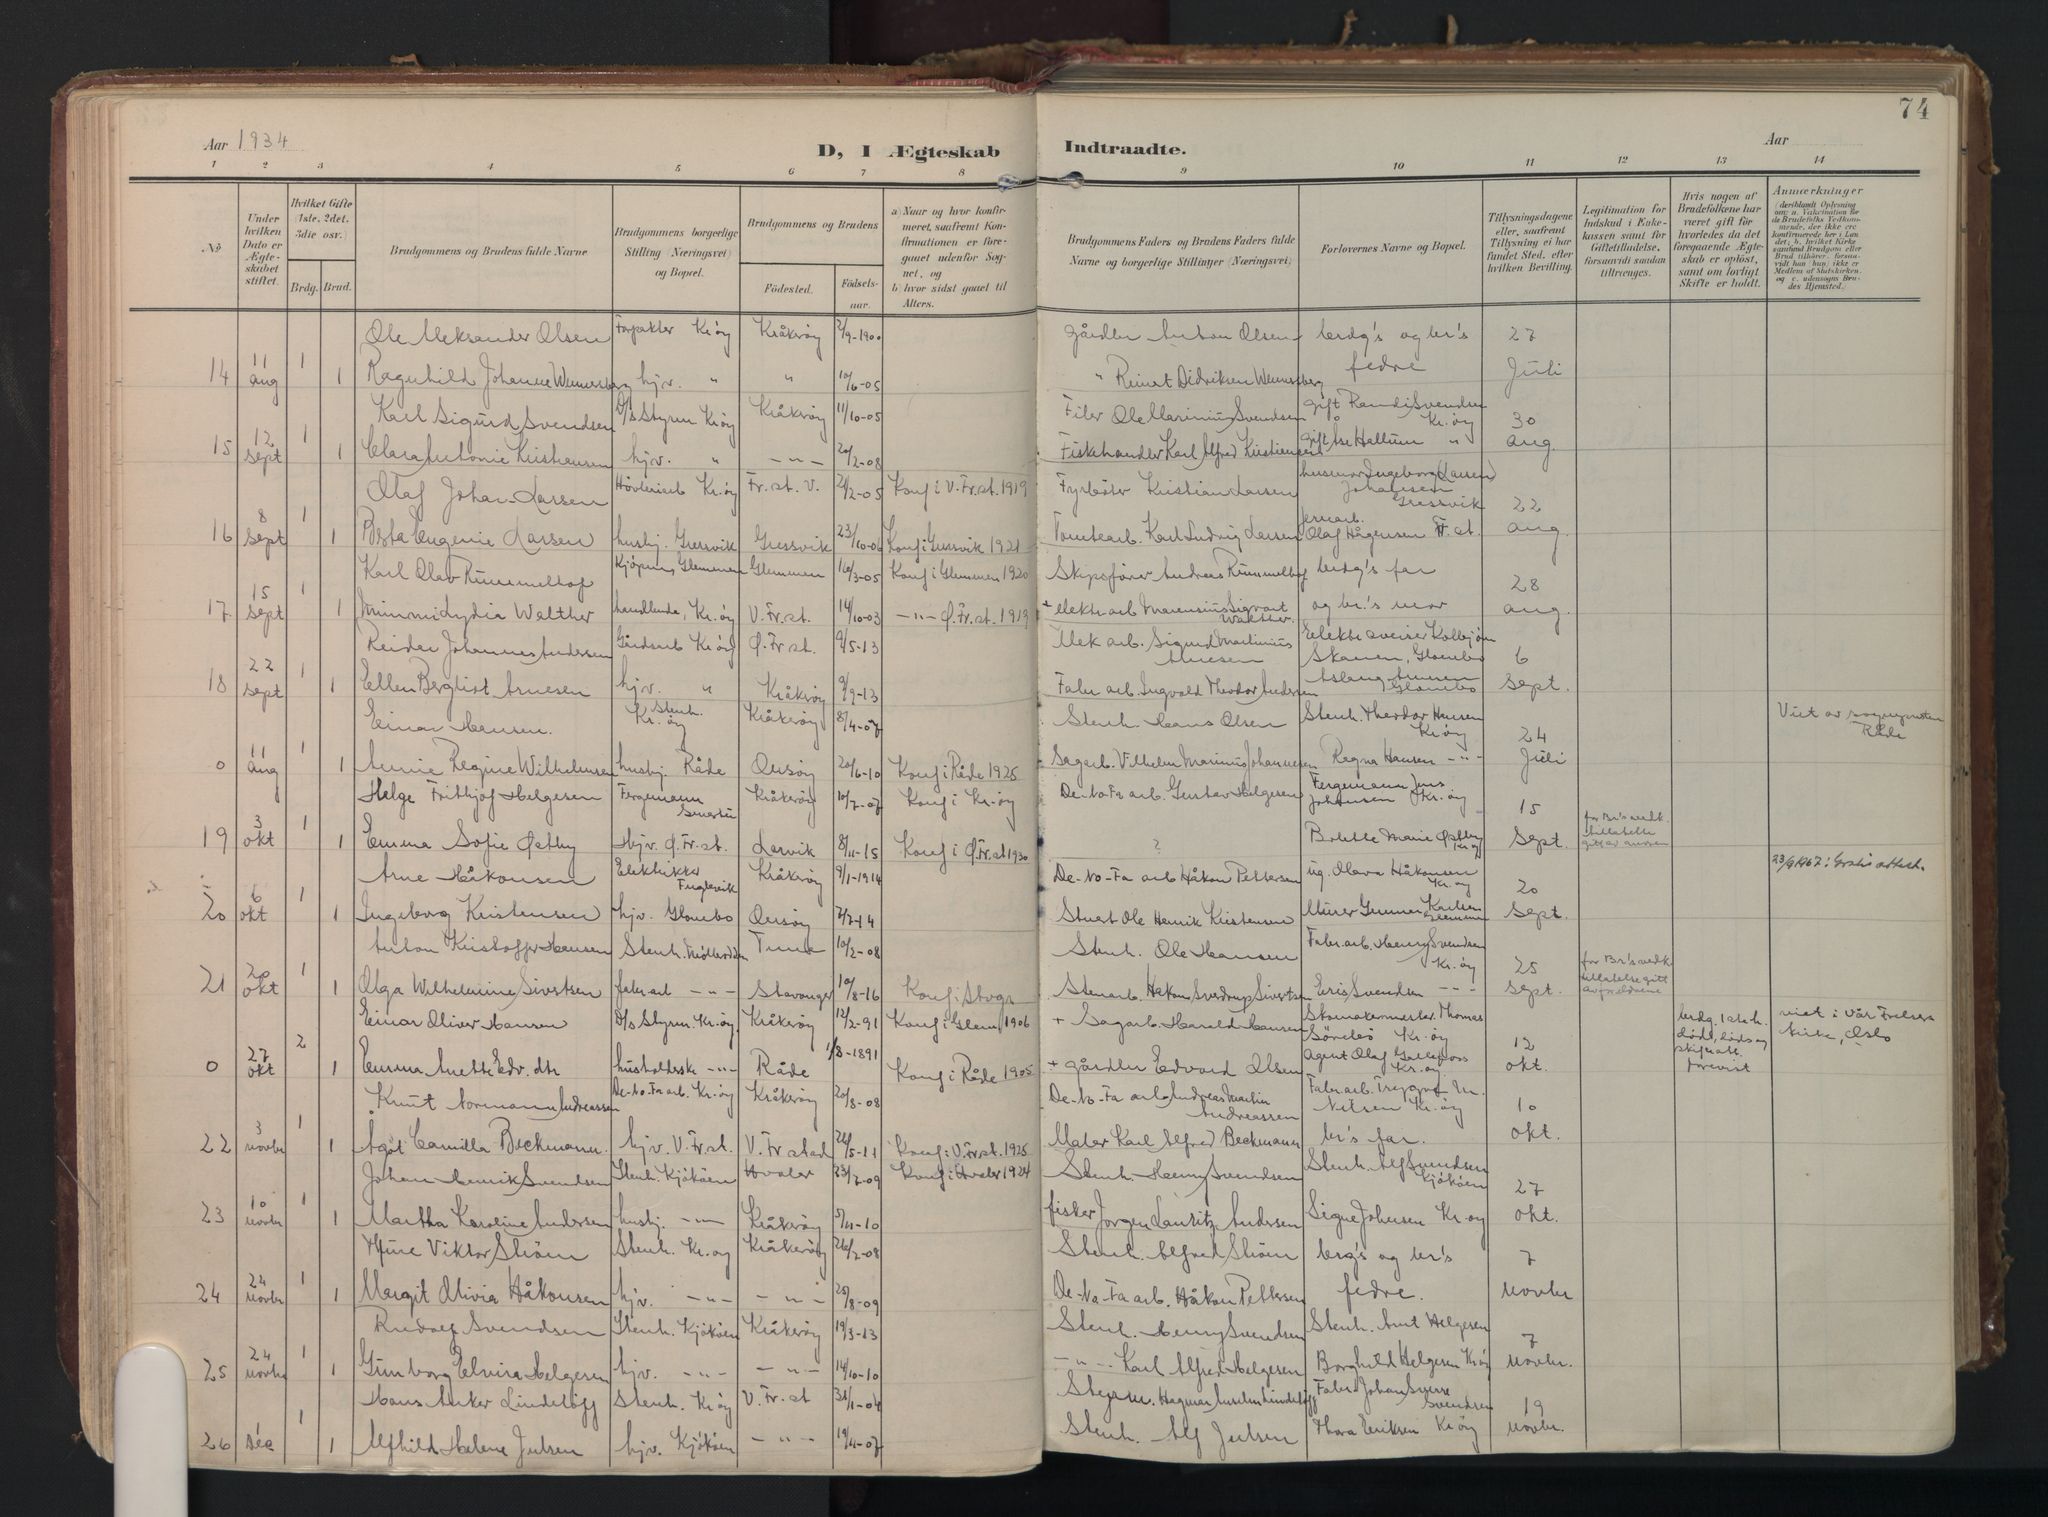 Aar 1934
D, I Ægteskab Indtraadte.
Aar
74
1 2 3 4 5 6 7 8 9 10 11 12 13 14
No
Under hvilken Dato er Ægteskabet stiftet.
Hvilket Gifte (1ste, 2det, 3die osv.)
Brdg. Brud.
Brudgommens og Brudens fulde Navne
Brudgommens borgerlige Stilling (Næringsvei) og Bopæl.
Brudgommens og Brudens
Fødested. Fødselsaar.
a) Naar og hvor konfirmeret, saafremt Konfirmationen er foregaaet udenfor Sognet, og
b) hvor sidst gaaet til Alters.
Brudgommens Faders og Brudens Faders fulde Navne og borgerlige Stillinger (Næringsvei)
Forlovernes Navne og Bopæl.
Tillysningsdagene eller, saafremt Tillysning ei har fundet Sted, efter hvilken Bevilling.
Legitimation for Indskud i Enkekassen samt for Giftetilladelse, forsaavidt saadan tiltrænges.
Hvis nogen af Brudefolkene har været gift før hvorledes da det foregaaende Ægteskab er opløst, samt om lovligt Skifte er holdt.
Anmærkninger
Ole Aleksander Olsen Forpakter Kr.øy Kråkerøy 2/9-1900 gårdbr Anton Olsen brdg's og br's 27
14 11 aug 1 1 Ragnhild Johanne Wennersberg hjv. " " 10/6-05 " Reinert Didriksen Wennersberg fedre Juli
Karl Sigurd Svendsen D/s Styrm Kr.øy Kråkerøy 11/10-05 Filer Ole Marinius Svendsen gift Randi Svendsen Kr.øy 30
15 12 sept 1 1 Clara Antonie Kristiansen hjv. " -"- 20/2-08 Fiskehandler Karl Alfred Kristiansen gift Hallum " aug.
Olaf Johan Larsen Høvleriarb Kr.øy Fr.st. V. 21/2-05 Konf i V.Fr.st. 1919 Fyrbøter Kristian Larsen husmor Ingeborg (Larsen) Johansen Gressvik 22
16 8 sept 1 1 Eugenie Larsen hushj. Gressvik Gressvik 23/10-06 Konf i Gressvik 1921 Tomtearb. Karl Ludvig Larsen jernarb. Olaf Hågensen Fr.st. aug.
Karl Olav Rummelhof Kjöpm Glemmen Glemmen 16/3-05 Konf i Glemmen 1920 Skipsfører Andreas Rummelhof brdg's far 28
17 15 sept 1 1 Mimmi Lydia Walther handlende, Kr.øy V.Fr.st. 14/10-03 -"- Ø.Fr.st. 1919 + elektr arb Marensius Sigvart Walther og br.'s mor aug.
Reidar Johannes Andersen Gårdsarb Kr.øy Ø.Fr.st. 9/5-13 Mek arb. Sigurd Martinius Arnesen Elektr sveiser Kolbjørn Skauen, Glombo 6
18 22 sept 1 Ellen Bergliot Arnesen hjv. " Kråkerøy 9/9-13 Fabr arb. Ingvald Theodor Andersen Aslaug Arnesen Glombo sept.
Einar Hansen. Stenh. Kr.øy Kråkerøy 8/4-07 Stenh. Hans Olsen Stenh. Theodor Hansen Kr.øy 24 Viet av sogneprest Råde
0 11 aug 1 Annie Regine Wilhelmsen hushj. Råde Onsøy 20/6-10 Konf i Råde 1925 Sagarb. Vilhelm Marinius Johannesen Ragna Hansen -"- Juli
Helge Frithjof Helgesen Fergemann Smertu Kråkerøy 10/7-07 Konf i Kr.øy De-No-Fa arb. Gustav Helgesen Fergemann Jens Johansen Kr.øy 15 for Br's vedk. tillatelse gitt av moren
19 3 okt 1 1 Emma Sofie Østby Hjv. Ø.Fr.st. Larvik 8/11-15 Konf i Ø.Fr.st 1930 ? Bolette Marie Østby Kr.øy Sept.
Arne Håkonsen Elektriker Fuglevik Kråkerøy 9/1-1914 De-No-Fa arb Håkon Pettersen ug. Olava Håkonsen Kr.øy 20 23/9 1967: Gratis attest.
20 6 okt 1 1 Ingeborg Kristensen hjv. Glombo Onsøy 2/7-14 Stuert Ole Henrik Kristensen Murer Gunnar Karlsen Glemmen Sept.
Anton Kristoffer Hansen Stenh. Møllerodden Tune 10/2-08 Stenh. Ole Hansen Fabr.arb. Henry Svendsen Kr.øy 25 for Br's vedk. tillatelse gitt av foreldrene
21 20 okt 1 1 Olga Wilhelmine Sivertsen fabr arb -"- Stavanger 10/8-16 Konf i Stvgr Stenarb. Håkon Sverdrup Sivertsen Eris Svendsen -"- sept.
Einar Oliver Hansen D/s Styrm. Kr.øy. Kråkerøy 12/2-91 Konf i Glem. 1906 + Sagarb. Harald Hansen Skomakermester Thomas Sørebø Kr.øy 12 brdg. 1ste h. død, skifteatt. forevist viet i Vår Frelsers kirke, Oslo
0 27 okt 2 1 Emma Anette Edv. dtr husholderske -"- Råde 1/8-1891 Konf i Råde 1905 + gårdbr Edvard Olsen Agent Olaf Kr.øy okt.
Knut Normann Andreassen De-No-Fa arb. Kr.øy Kråkerøy 20/8-08 De-No-Fa arb Andreas Martin Andreassen Fabr arb Trygve M. Nilsen Kr.øy 10
22 3 novbr 1 1 Ågot Camilla Beckmann. hjv. V.Fr.st. V.Fr stad 26/5-11 Konf i V.Fr.st. 1925 Maler Karl Alfred Beckmann br's far. okt.
Johan Henrik Svendsen Stenh. Kjökøen Hvaler 23/7-09 Konf i Hvaler 1924 Stenh. Henry Svendsen Stenh. Alf Svendsen Kjökøen 27
23 10 novbr 1 1 Martha Karoline Andersen hushj. -"- Kråkerøy 5/11-10 fisker Jørgen Lauritz Andersen Signe Johansen Kr.øy okt.
Arne Viktor Strøm Stenh. Kr.øy Kråkerøy 26/2-08 Stenh. Alfred Strøm brg's og br's 7
24 24 novbr 1 1 Margit Olivia Håkonsen hjv. -"- -"- 25/8-09 De-No-Fa arb. Håkon Pettersen fedre. novbr
Rudolf Svendsen Stenh. Kjökøen Kråkerøy 19/3-13 Stenh. Henry Svendsen Stenh. Arnt Helgesen 7
25 24 novbr 1 1 Gunborg Elvira Helgesen hjv. -"- -"- 14/10-10 -"- Karl Alfred Helgesen Borghild Helgesen Kr.øy novbr.
Hans Anker Lindeløff Stenh. Kr.øy V.Fr.st 31/1-04 Styrm. Hagmar Anselm Lindeløff Fabr Johan Sverre Svendsen 19
26 dec 1 1 Alfhild Helene Julsen hjv. Kjökøen -"- 19/11-07 Stenh. Alf Julsen Thora Eriksen Kr.øy novbr.